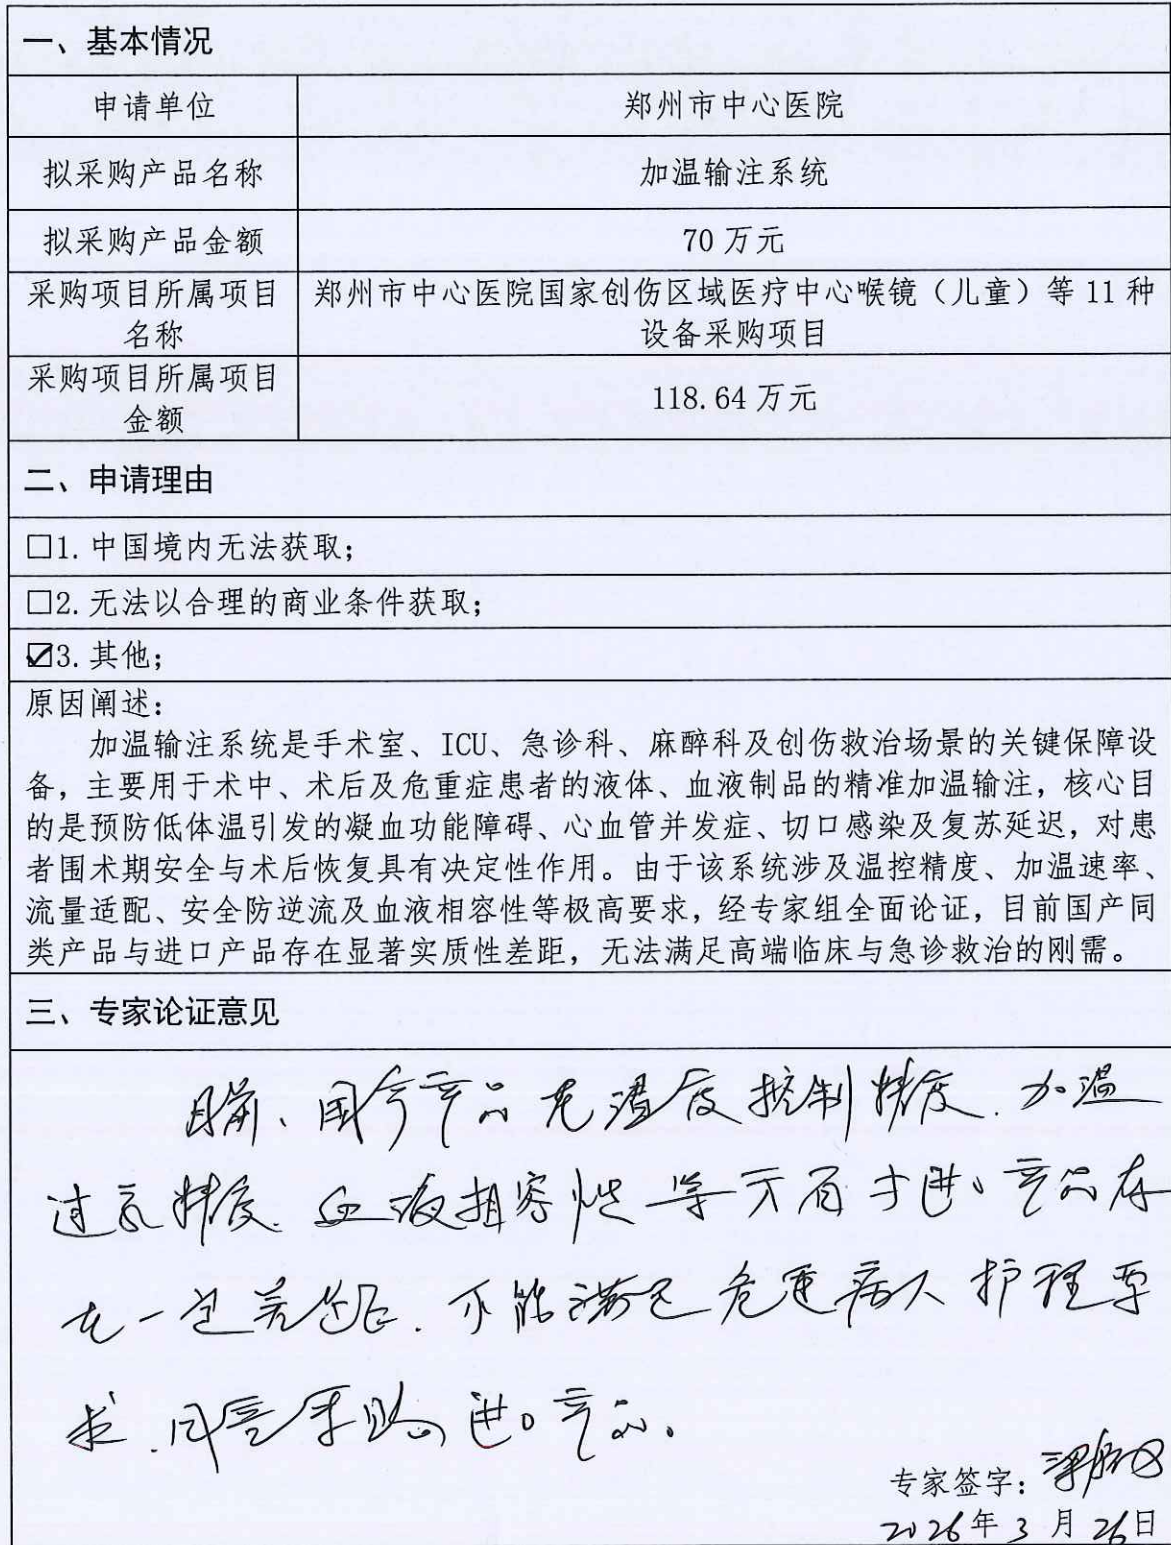 一、基本情况
申请单位 郑州市中心医院
拟采购产品名称 加温输注系统
拟采购产品金额 70万元
采购项目所属项目 郑州市中心医院国家创伤区域医疗中心喉镜（儿童）等11种
名称 设备采购项目
采购项目所属项目
金额 118.64万元
二、申请理由
□1.中国境内无法获取；
□2.无法以合理的商业条件获取；
☑3.其他；
原因阐述：
加温输注系统是手术室、ICU、急诊科、麻醉科及创伤救治场景的关键保障设
备，主要用于术中、术后及危重症患者的液体、血液制品的精准加温输注，核心目
的是预防低体温引发的凝血功能障碍、心血管并发症、切口感染及复苏延迟，对患
者围术期安全与术后恢复具有决定性作用。由于该系统涉及温控精度、加温速率、
流量适配、安全防逆流及血液相容性等极高要求，经专家组全面论证，目前国产同
类产品与进口产品存在显著实质性差距，无法满足高端临床与急诊救治的刚需。
三、专家论证意见
目前、国产产品在温度控制精度、加温
精度、血液相容性等方面与进口产品存
在一定差距、不能满足危重病人护理要
求、同意采购进口产品。
专家签字：
2026年3月26日